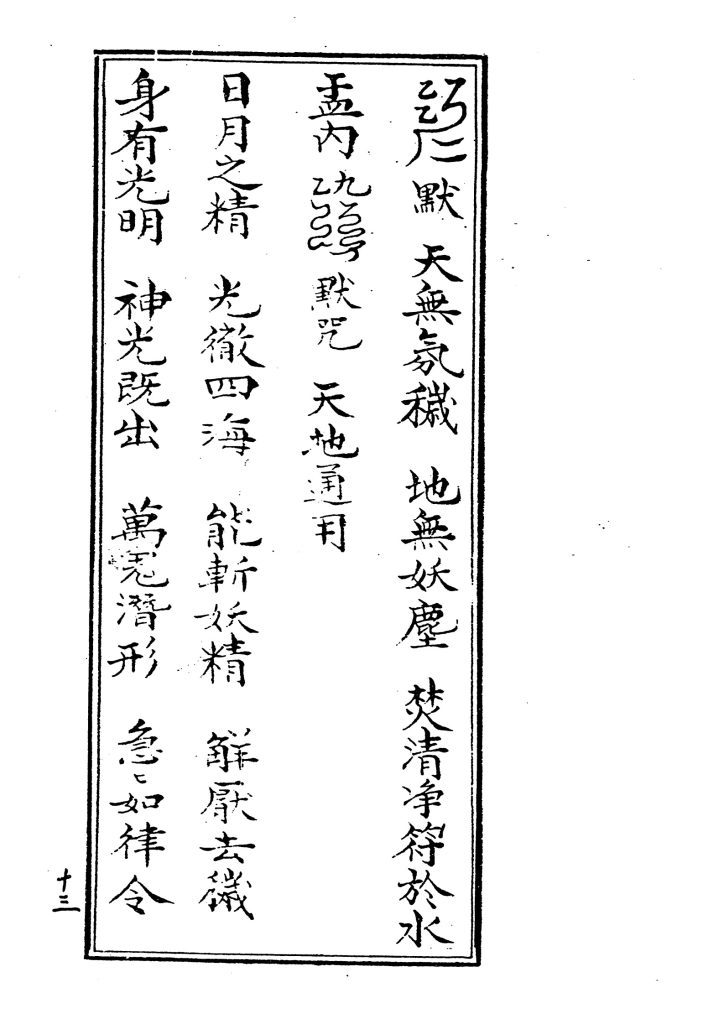 默 天無氛穢 地無妖塵 焚清净符於水
盂内 默咒 天地通用
日月之精 光徹四海 能斬妖精 解厭去穢
身有光明 神光既出 萬鬼潛形 急〻如律令
十三